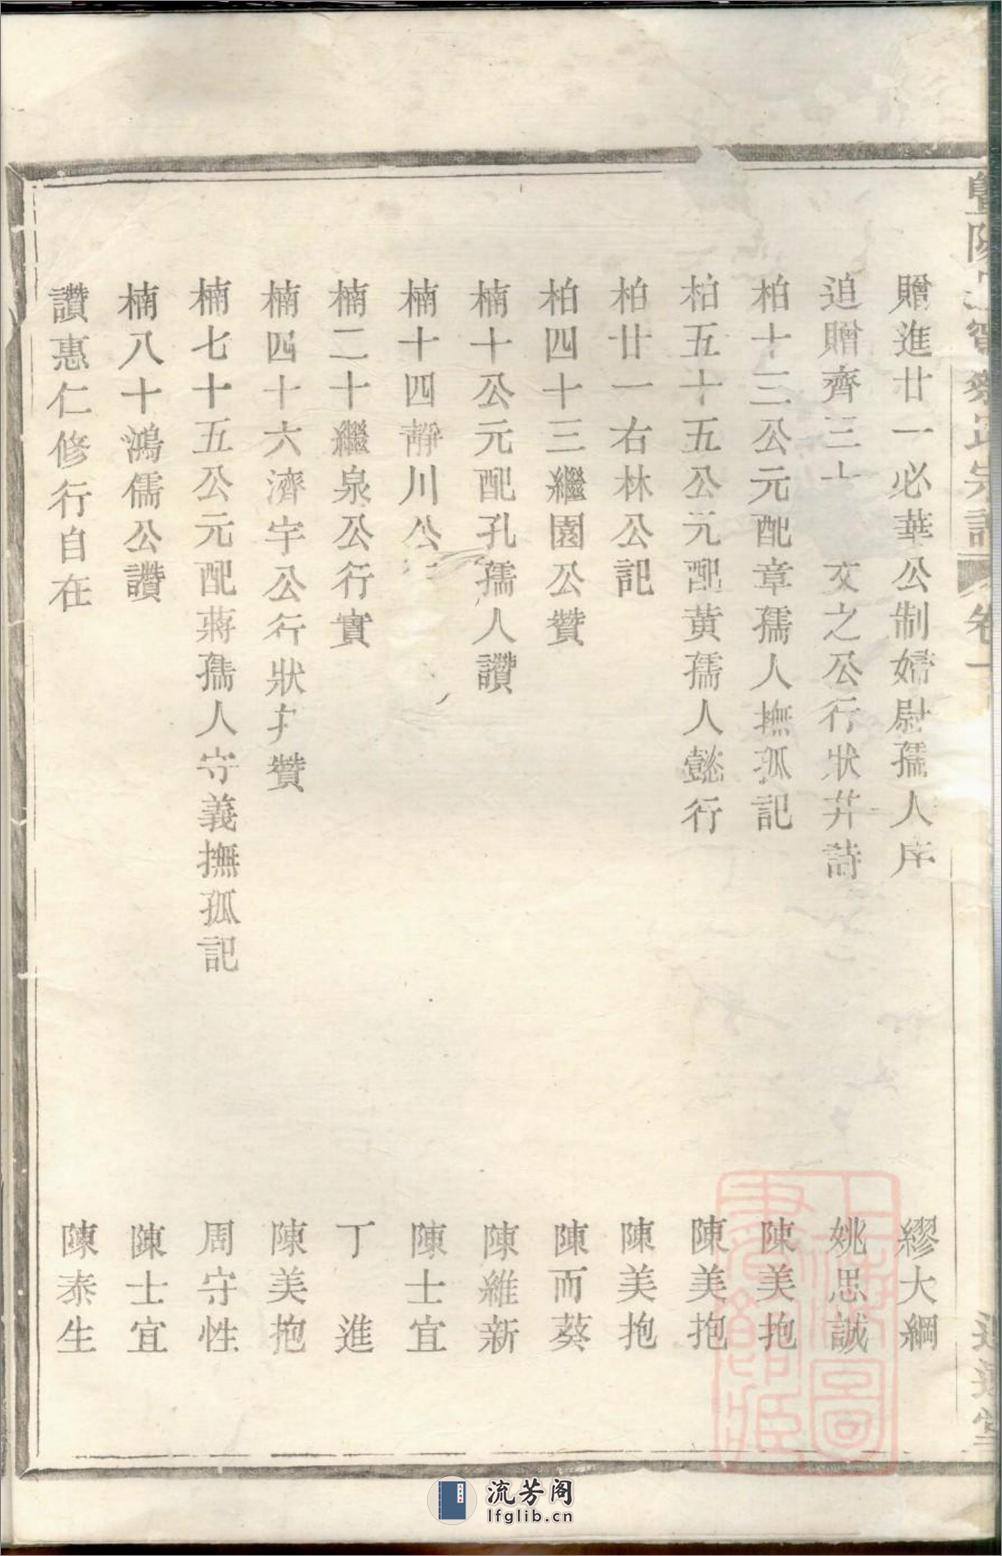 贈進廿一必華公制婦尉孺人序 繆大綱
追贈齊三十 文之公行狀幷詩 姚思誠
柏十三公元配章孺人撫孤記 陳美抱
柏五十五公元配黄孺人懿行 陳美抱
柏廿一右林公記 陳美抱
柏四十三繼園公贊 陳而葵
楠十公元配孔孺人讚 陳維新
楠十四靜川公 陳士宜
楠二十繼泉公行實 丁進
楠四十六濟宇公行狀幷贊 陳美抱
楠七十五公元配蔣孺人守義撫孤記 周守性
楠八十鴻儒公讚 陳士宜
讚惠仁修行自在 陳泰生
卷一
上海圖書館藏
流芳阁
lfglib.cn